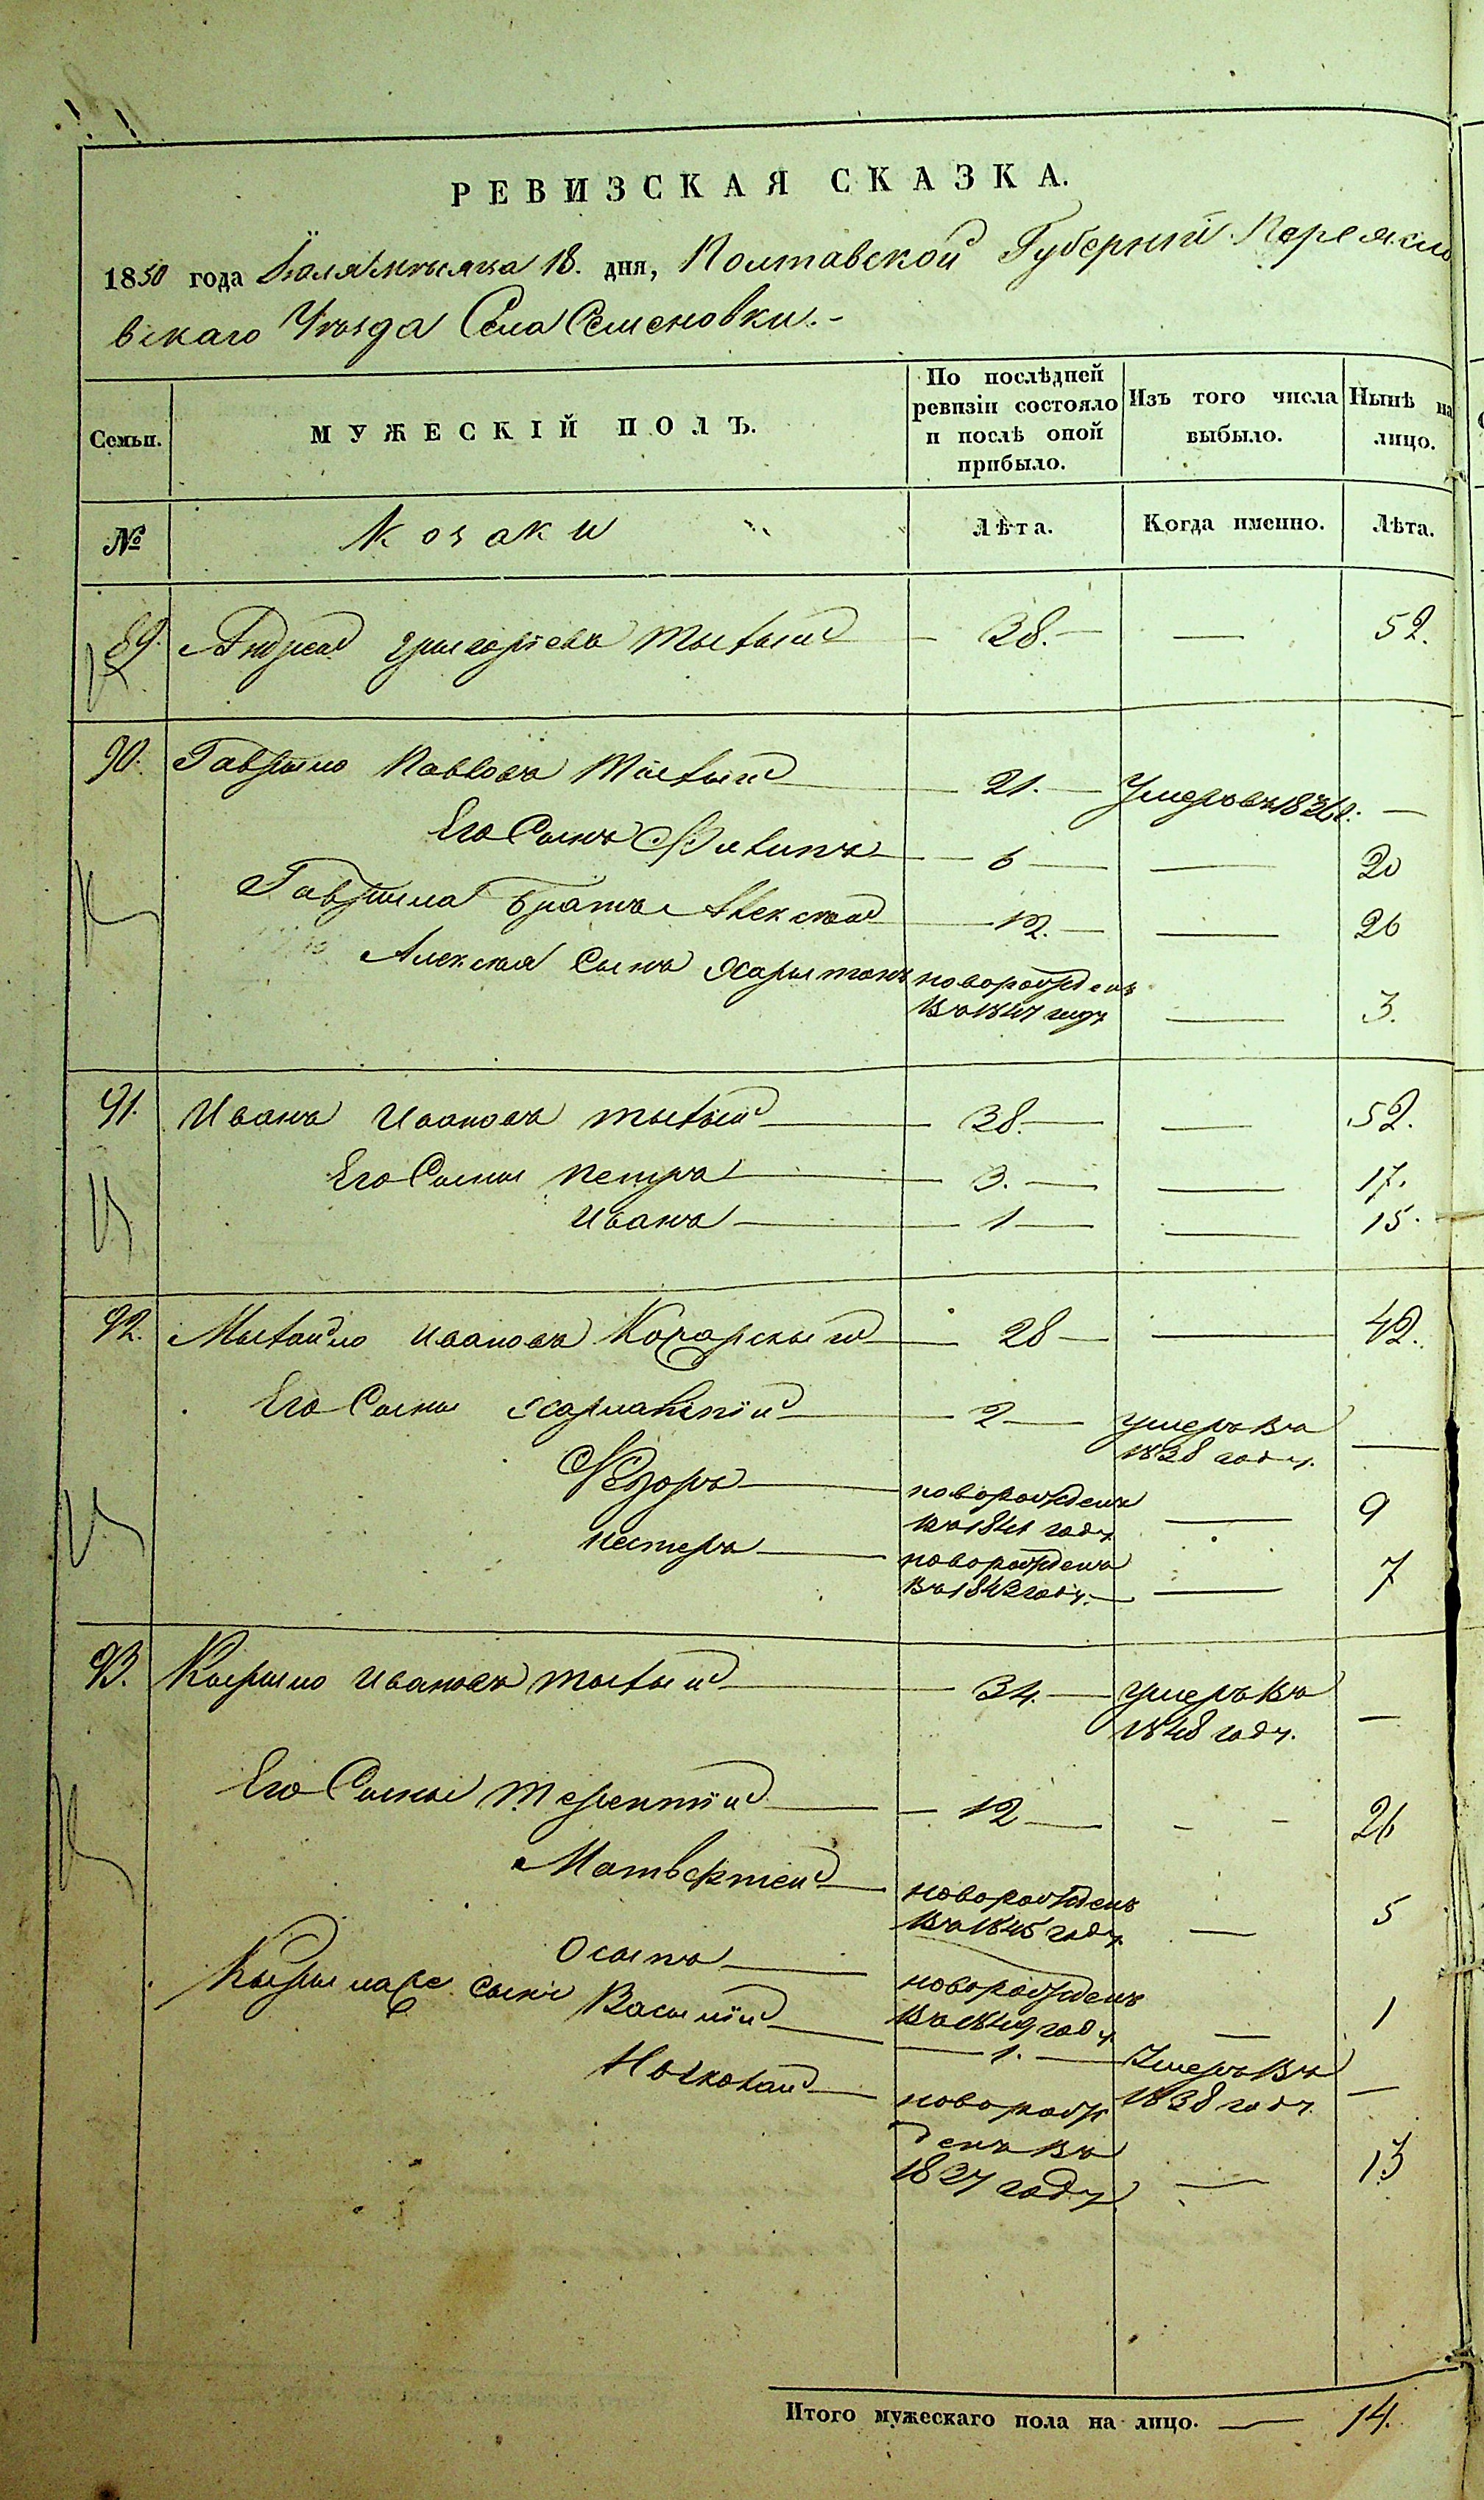 РЕВИЗСКАЯ СКАЗКА.
1850 года Іюля мѣсяца 18. дня, Полтавской Губерніи Переясло
вскаго Уѣзда Села Семеновки.-
Семьи. МУЖЕСКІЙ ПОЛЪ. По послѣдней ревизіи состояло и послѣ оной прибыло. Изъ того числа выбыло. Нынѣ на лицо.
№ Козаки Лѣта. Когда именно. Лѣта.
89. Андрей Григоріевъ 38. — — 52.
90. Гаврыло Павловъ 21. — Умеръ въ 1836 г. —
Его Сынъ Филипъ — 6 — — 20
Гаврыла братъ Алексѣй — 12. — — 26
Алексѣя Сынъ Харытонъ новорожденъ
въ 1847 году — 3.
91. Иванъ Ивановъ 38. — — 52.
Его Сыны Петръ — 3. — — 17.
Иванъ — 1 — — 15.
92. Мыхайло Ивановъ — 28 — — 42.
Его Сыны — 2 — умеръ въ
1838 году. —
Ѳедоръ — новорожденъ
въ 1841 году — 9
Нестеръ — новорожденъ
въ 1843 году. — — 7
93. Кырыло Ивановъ 34. — умеръ въ
1848 году. —
Его Сыны Терентій — 12 — - - 26
Матвей — новорожденъ
въ 1845 году — 5
Осыпъ — новорожденъ
въ 1849 году — 1
Сыны Васылій — 1. — Умеръ въ
1838 году. —
новорож
денъ въ
1837 году — 13
Итого мужескаго пола на лицо. — 14.